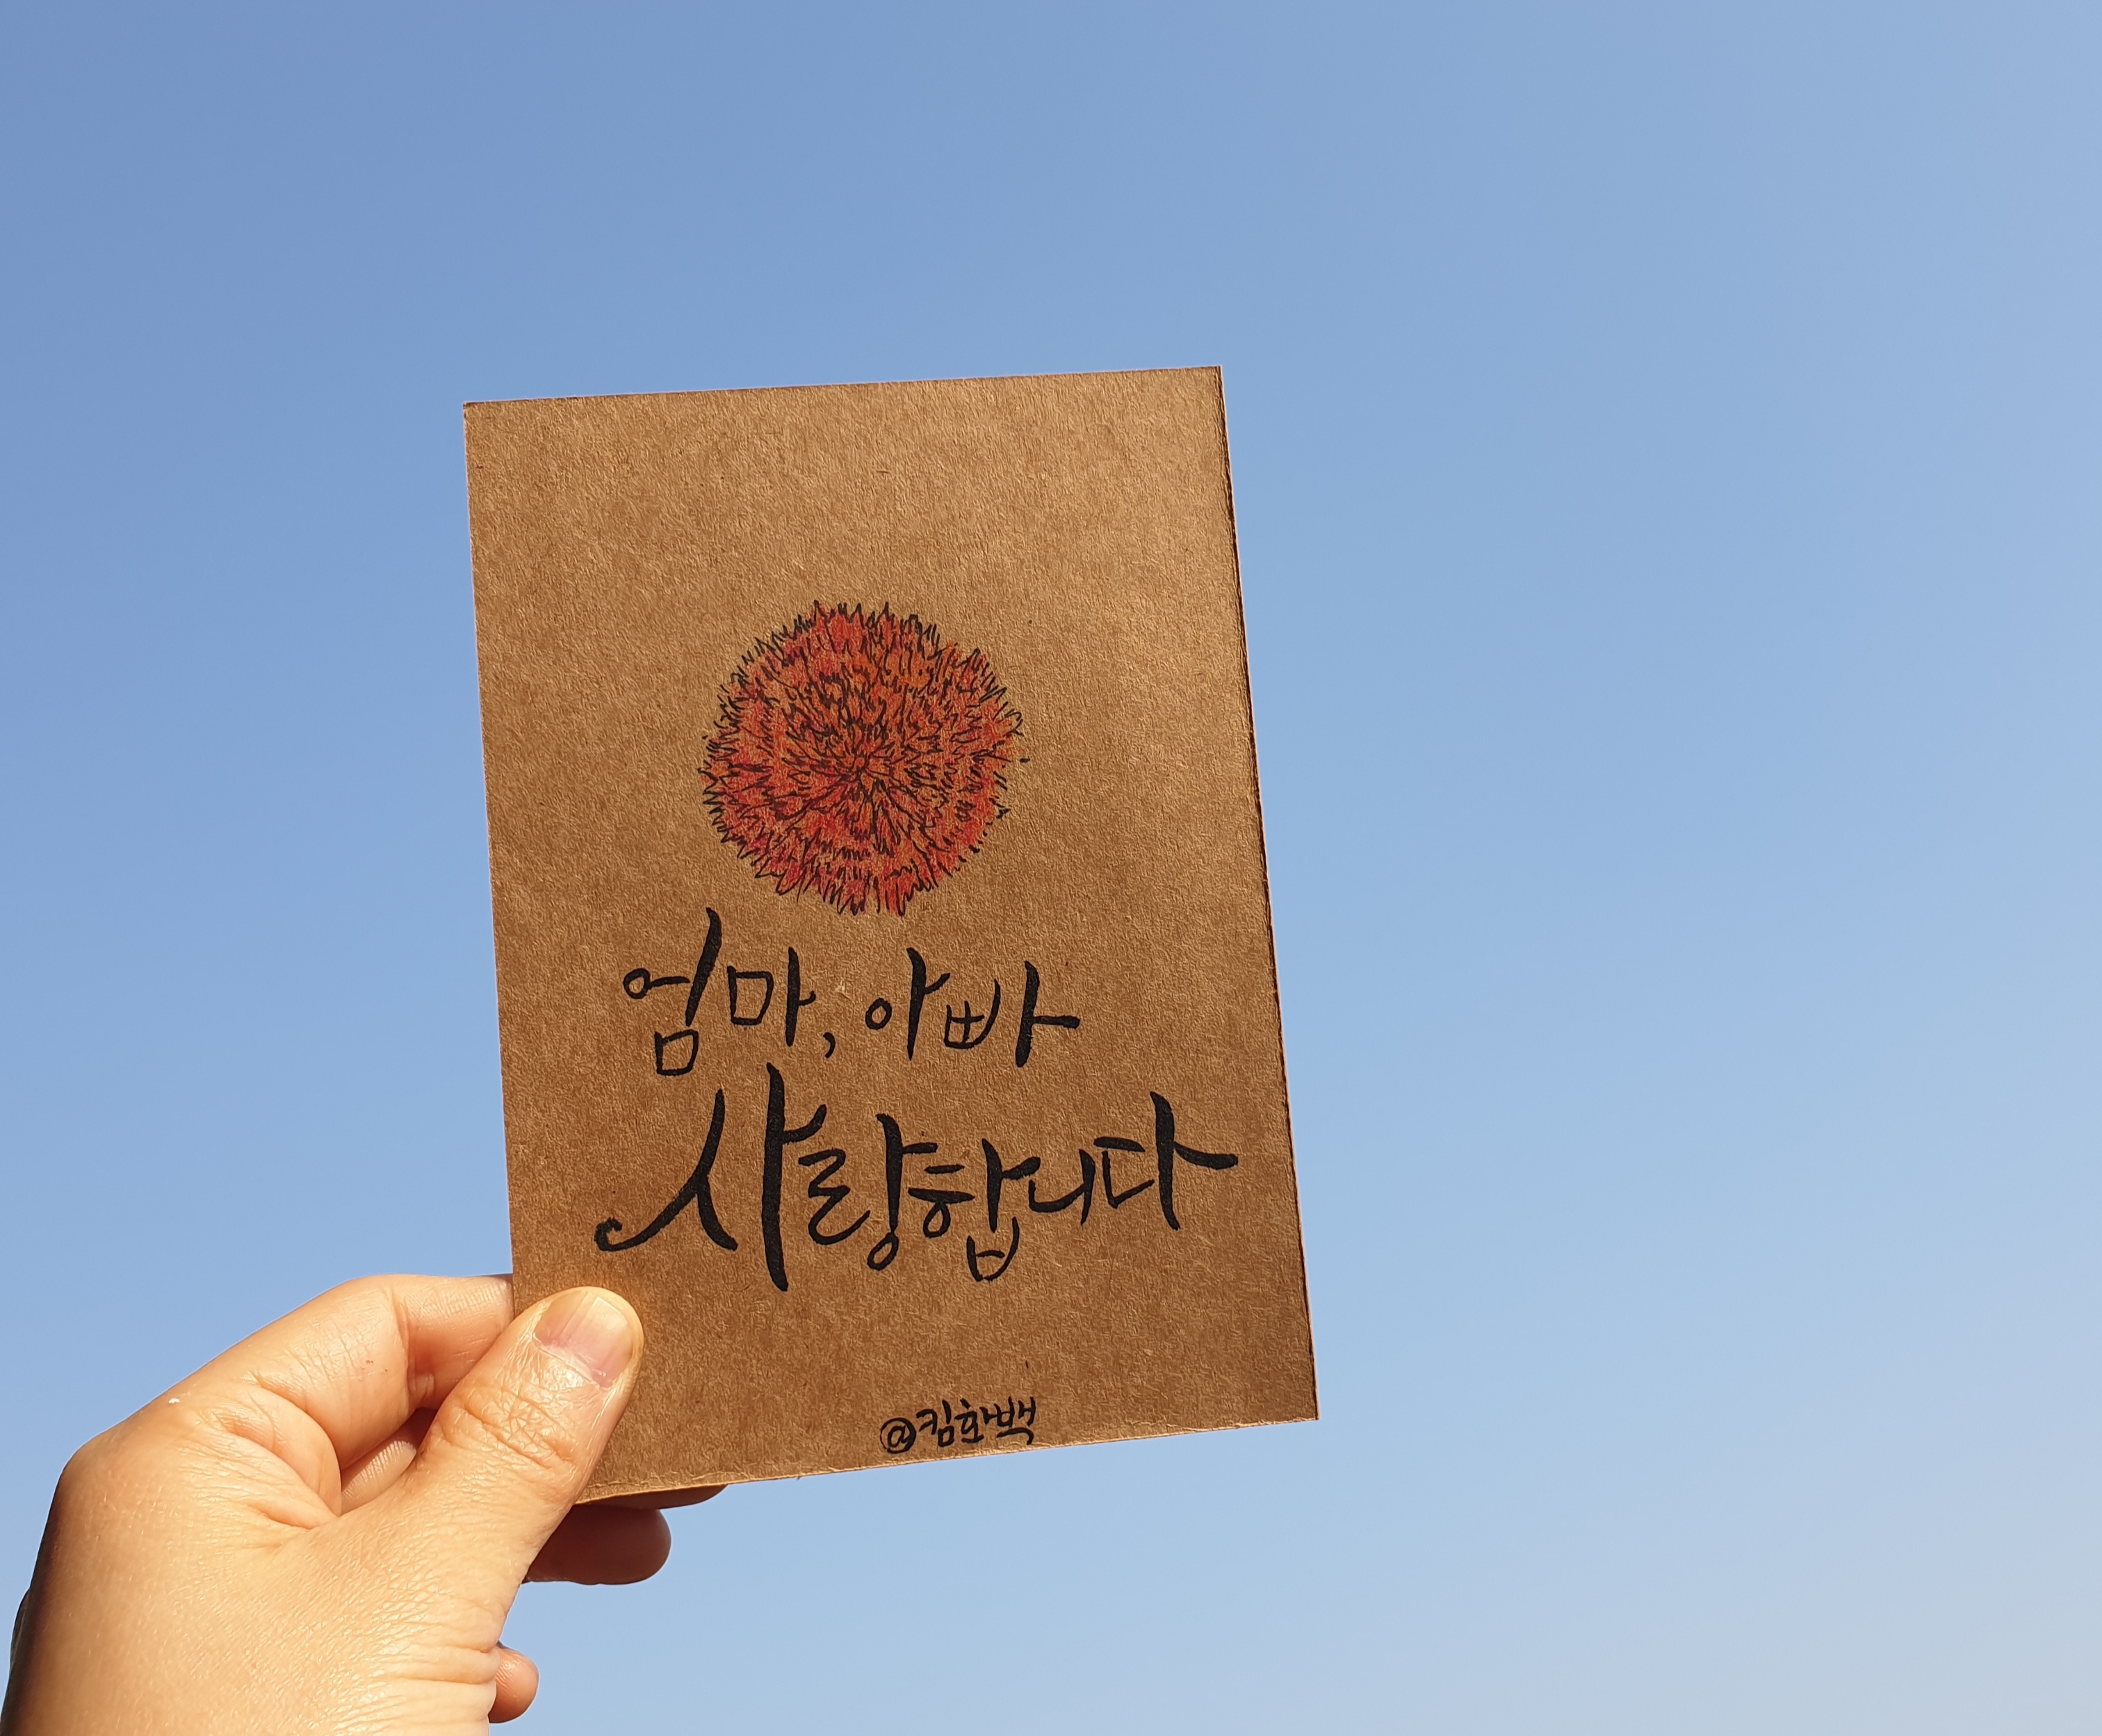 엄마, 아빠
사랑합니다
@킴화백